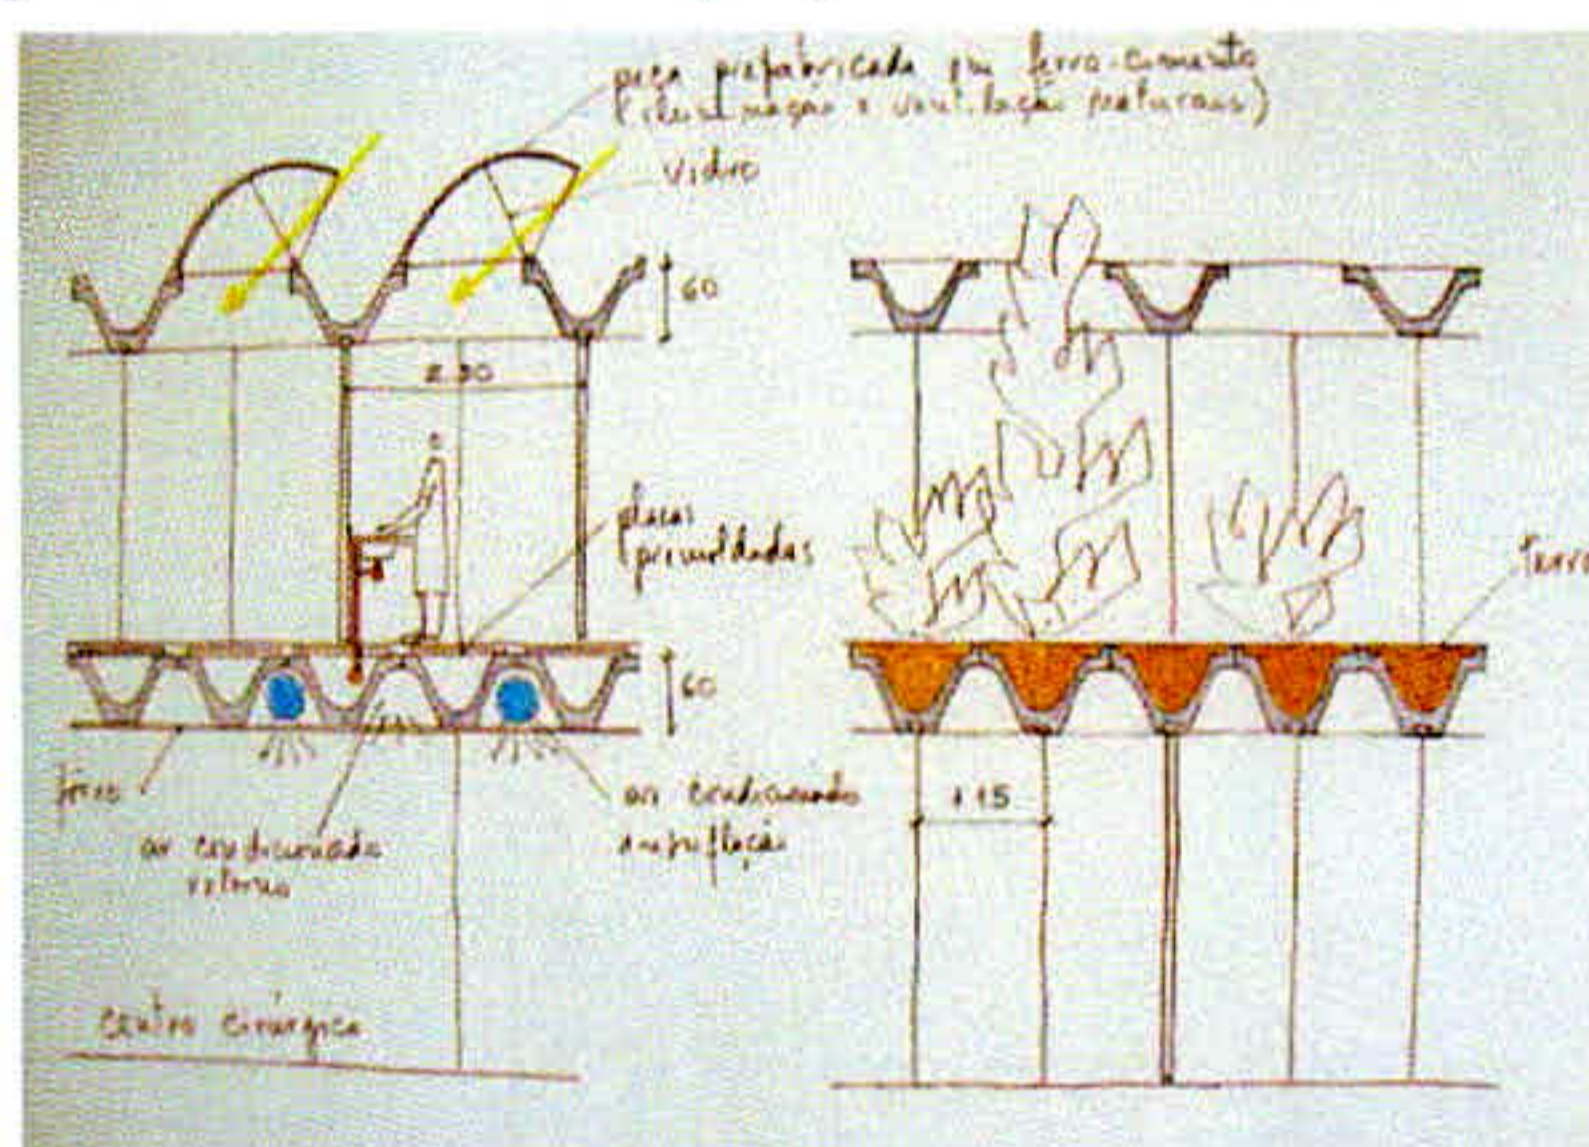 peça prefabricada em ferro-cimento
(iluminação e ventilação naturais)
vidro
60
2.30
placas
premoldadas
terra
60
forro
ar condicionado
insuflação
115
ar condicionado
retorno
Centro Cirúrgico